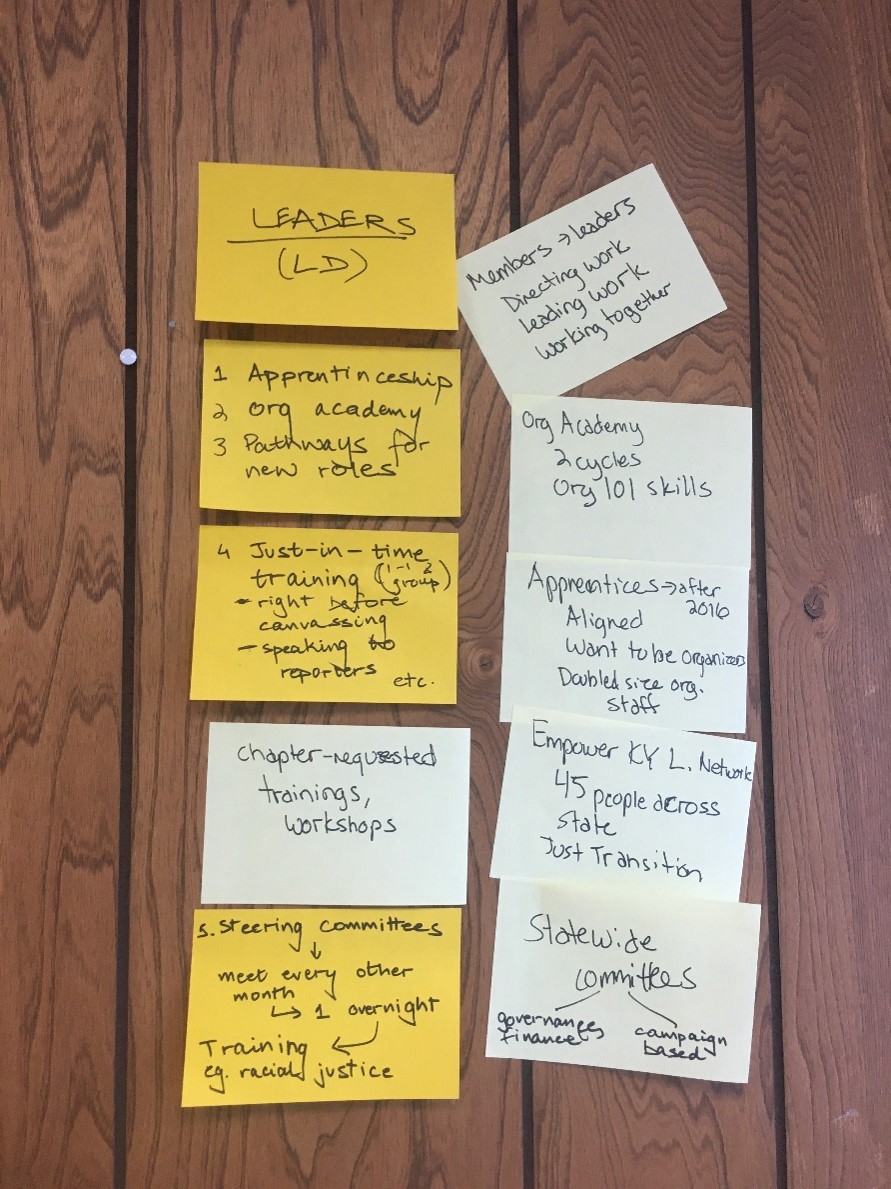 LEADERS
(LD)
1 Apprentinceship
2 org academy
3 Pathways for
new roles
4 Just-in-time
training (1-1 & group)
- right before
canvassing
- speaking to
reporters
etc.
Chapter-requested
trainings,
workshops
5. Steering committees
↓
meet every other
month
↳ 1 overnight
Training
eg. racial justice
Members → leaders
Directing work
leading work
working together
Org Academy
2 cycles
Org 101 skills
Apprentices → after
2016
Aligned
Want to be organizers
Doubled size org.
staff
Empower KY L. Network
45 people across
state
Just Transition
Statewide
committees
governance,
finance
campaign
based